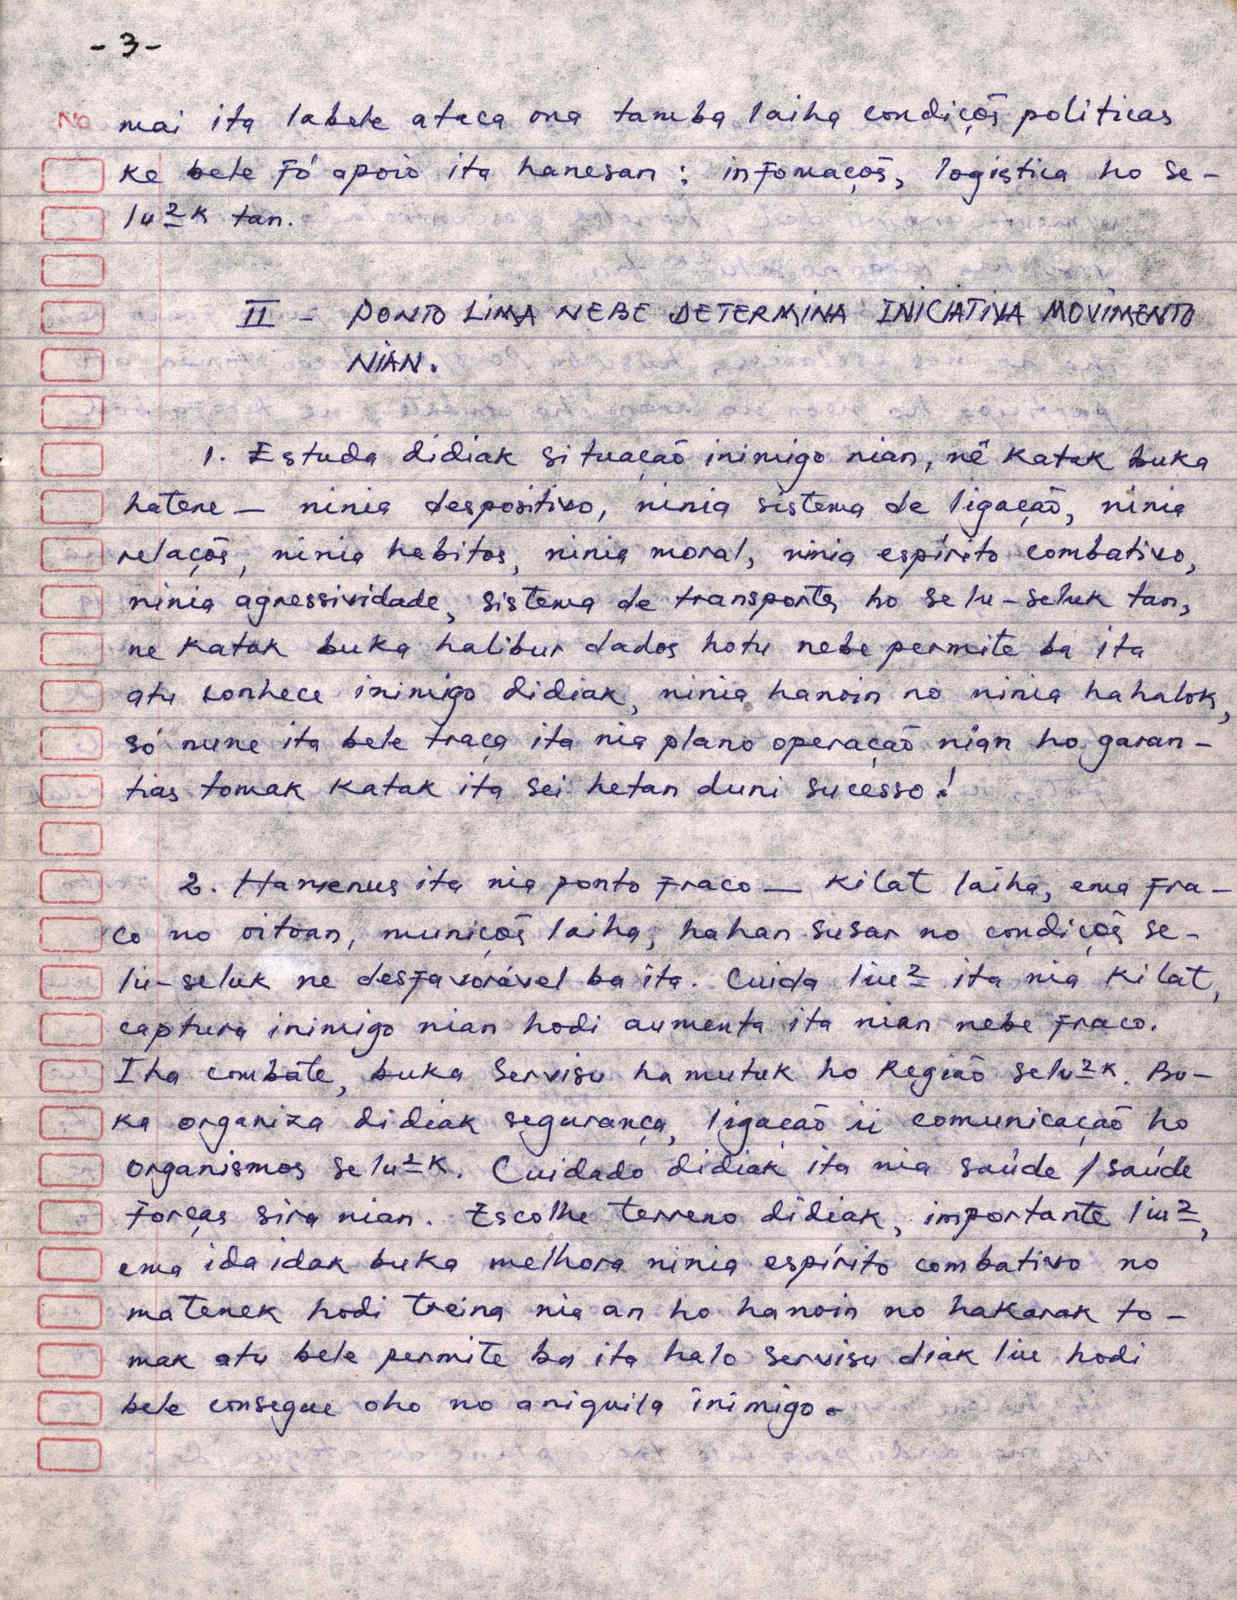 - 3 -
No mai ita labele ataca ona tamba laiha condiçõs politicas
ke bele fó apoio ita hanesan : infomaçõs, logistica ho se-
lu2k tan.
II - PONTO LIMA NEBE DETERMINA INICIATIVA MOVIMENTO
NIAN.
1. Estuda didiak situação inimigo nian, nê katak buka
hatene — ninia despositivo, ninia sistema de ligação, ninia
relaçõs, ninia habitos, ninia moral, ninia espírito combativo,
ninia agressividade, sistema de transportes ho selu-seluk tan,
ne katak buka halibur dados hotu nebe permite ba ita
atu conhece inimigo didiak, ninia hanoin no ninia hahalok,
só nune ita bele traça ita nia plano operação nian ho garan-
tias tomak katak ita sei hetan duni sucesso!
2. Hamenus ita nia ponto fraco — kilat laiha, ema fra-
co no oitoan, muniçõs laiha, hahan susar no condiçõs se-
lu-seluk ne desfavorável ba ita. Cuida liu2 ita nia kilat,
captura inimigo nian hodi aumenta ita nian nebe fraco.
Iha combate, buka servisu hamutuk ho Região selu2k. Bu-
ka organiza didiak segurança, ligação ii comunicação ho
organismos selu2k. Cuidado didiak ita nia saúde / saúde
forças sira nian. Escolhe terreno didiak, importante liu2,
ema ida idak buka melhora ninia espírito combativo no
matenek hodi treina nia an ho hanoin no hakarak to-
mak atu bele permite ba ita halo servisu diak liu hodi
bele consegue oho no aniquila inimigo.